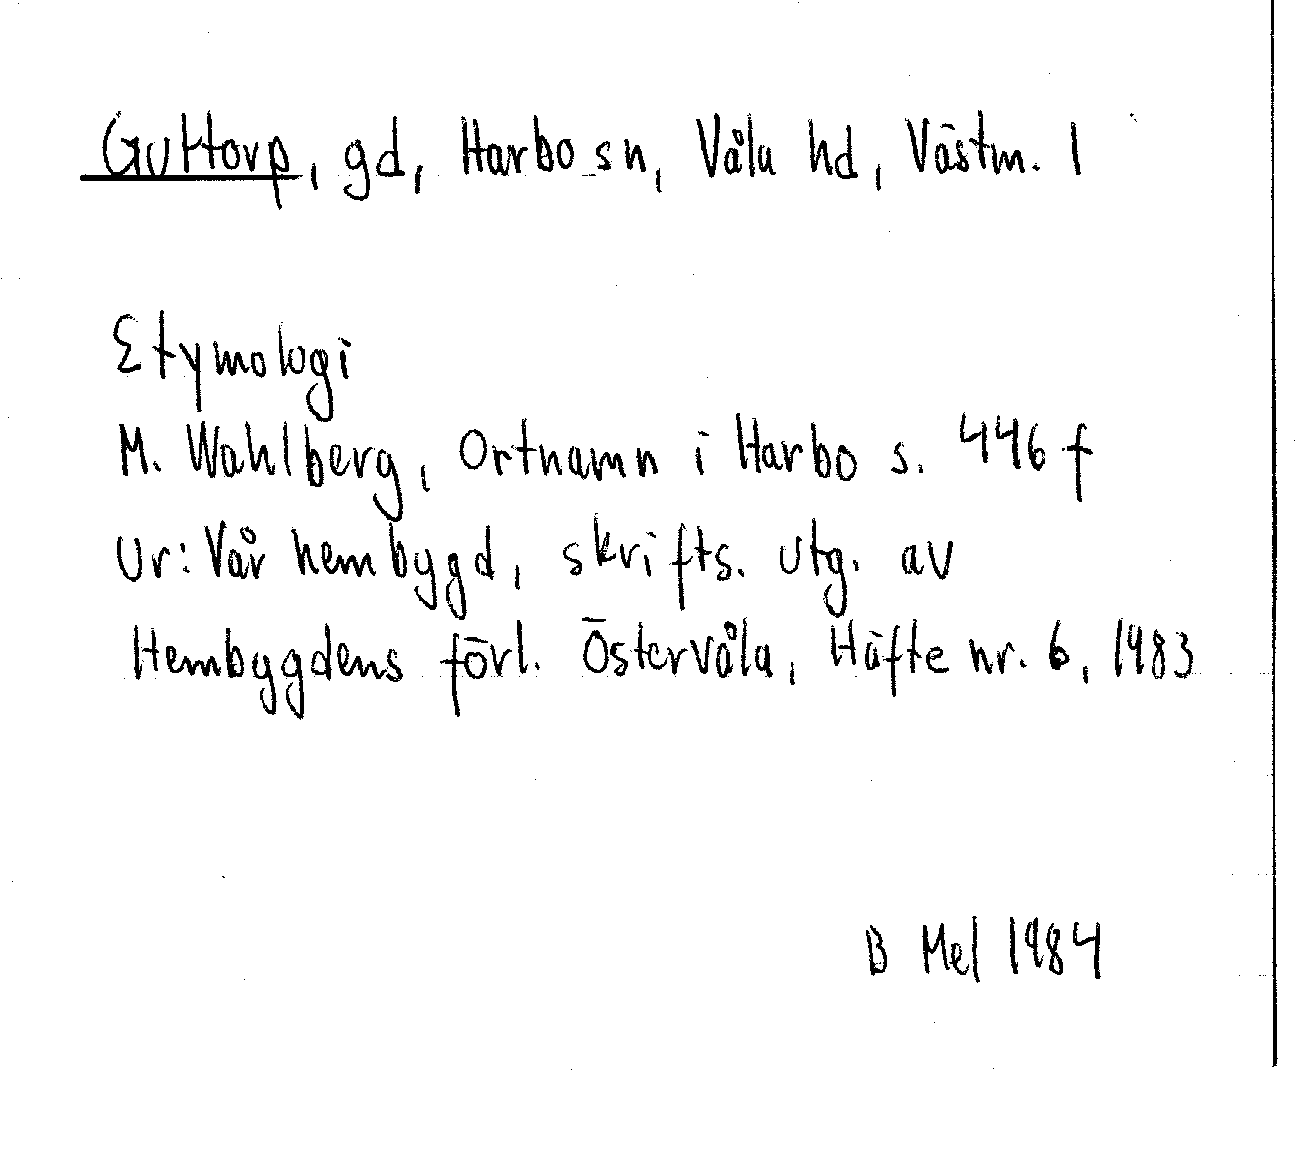 Guttorp, gd, Harbo sn, Våla hd, Västm. l
Etymologi
M. Wahlberg, Ortnamn i Harbo s. 446 f
Ur: Vår hembygd, skrifts. utg. av
Hembygdens förl. Östervåla, Häfte nr. 6, 1983
B Mel 1984